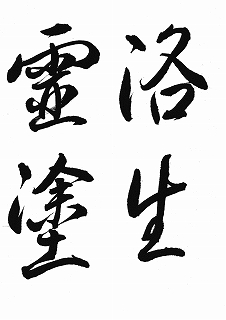 洛生
靈塗